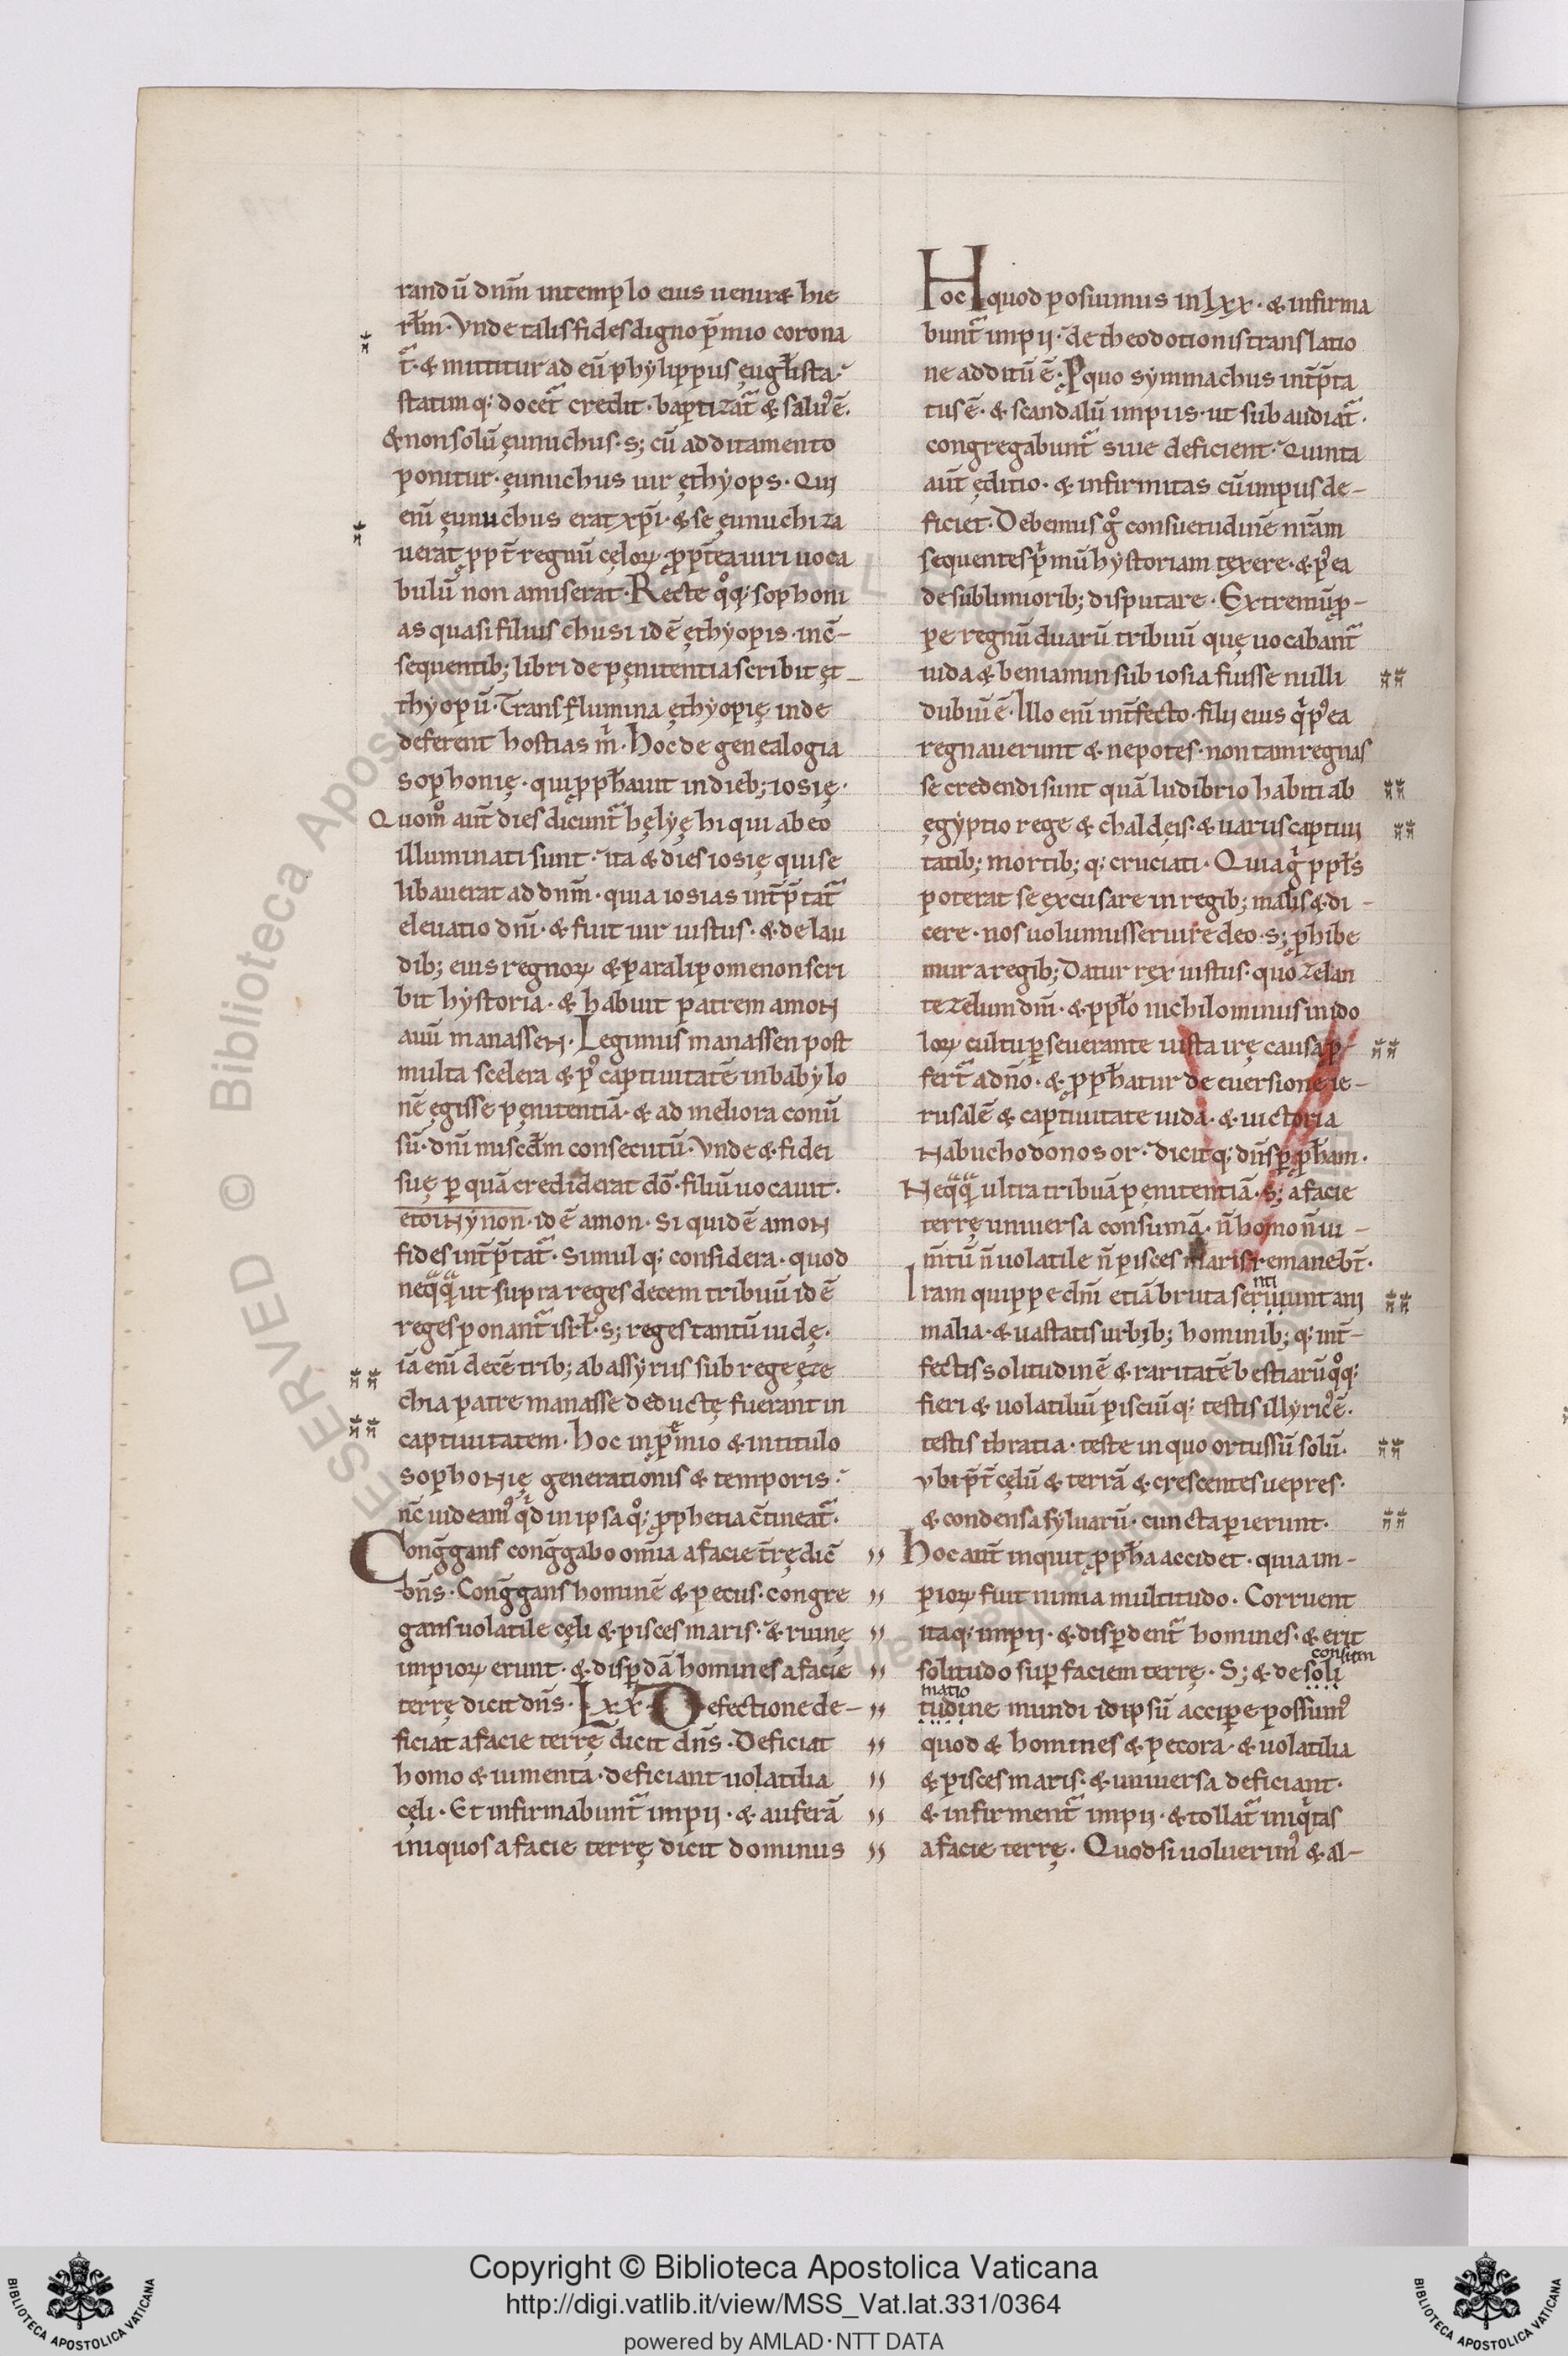 randū dnm̄ in templo eius uenire & hie
rłm̄· Vnde talis fides digno p̄mio corona
t᷑· & mittitur ad eū phylippus ęugłista·
statimq; docet᷑ credit· baptizat᷑ & saluꝰ ē·
& non solū ęunuchus· s; cū additamento
ponitur· ęunuchus uir ęthyops· Qui
eni᷑ ęunuchus erat xp̄i· & se ęunuchiza
uerat ꝓpt̄ regnū cęloꝝ ꝓpt̄ea uiri uoca
bulū non amiserat· Recte qͦq; sophoni
as quasi filius chusi id ē ęthyopis· in c̄-
sequentib; libri de pęnitentia scribit ęt-
thyopū· Trans flumina ęthyopię inde
deferent hostias m̍· Hoc de genealogia
sophonię· qui ꝓpħauit in dieb; iosię·
Quom̊ aut̄ dies dicunt᷑ hęlyę hi qui ab eo
illuminati sunt· ita & dies iosię qui se
libauerat ad dnm̄· quia iosias int̄p̄tat᷑
eleuatio dn̄i· & fuit uir iustus· & de lau
dib; eius regnoꝝ & paralipomenon scri
bit hystoria· & habuit patrem amoɴ
auū manasseɴ· Legimus manassen post
multa scelera & pꝰ captiuitatē in babylo
nē ęgisse pęnitentiā· & ad meliora conū
sū· dn̄i misc̄dm consecutū· Vnde & fidei
suę ꝑ quā crediderat dō· filiū uocauit·
etoiɴynon· id ē amon· Si quidē amoɴ
fides int̄p̄tat᷑· Simulq; considera· quod
neqͣqͣ ut supra reges decem tribuū id ē
reges ponant᷑ isrł· s; reges tantū iudę·
iā eni᷑ decē trib; ab assyriis sub rege ęze
chia patre manasse deductę fuerant in
captiuitatem· Hoc in p̄emio & in titulo
sophoɴię generationis & temporis·
nc̄ uideamꝰ qͥd in ipsa qͦq; ꝓphetia c̄tineat᷑·
Conḡgans conḡgabo omīa a facie t̄rę dic̄
dn̄s· Conḡgans hominē & pecus· congre
gans uolatile cęli & pisces maris· & ruinę
impioꝝ erunt· & disꝑdā homines a facie
terrę dicit dn̄s· Lxx· Defectione de-
ficiat a facie terrę dicit dn̄s· Deficiat
homo & iumenta· deficiant uolatilia
cęli· Et infirmabunt᷑ impii· & auferā
iniquos a facie terrę dicit dominus
Hoc quod posuimus in lxx· & infirma
bunt᷑ impii· de theodotionis translatio
ne additū ē· Ꝓ quo symmachus int̄p̄ta
tus ē· & scandalū impiis· ut subaudiat᷑·
congregabunt᷑ siue deficient· Quinta
aut̄ ęditio· & infirmitas cū impiis de-
ficiet· Debemus gͦ consuetudinē nr̄am
sequentes pͥmū hystoriam texere· & pꝰea
de sublimiorib; disputare· Extremū ꝓ-
pe regnū duarū tribuū quę uocabant᷑
iuda & beniamin sub iosia fuisse nulli
dubiū ē· Illo eni᷑ int̄fecto· filii eius qͥ pꝰea
regnauerunt & nepotes· non tam regnas
se credendi sunt quā ludibrio habiti ab
ęgyptio rege & chaldęis· & uariis captiui
tatib; mortib;q; cruciati· Quia gͥ pp̄ls
poterat se excusare in regib; malis & di-
cere· nos uolumus seruire deo· s; ꝓhibe
mur a regib; Datur rex iustus· quo zelan
te zelum dn̄i· & pp̄lo nichilominus in ido
loꝝ cultu ꝑseuerante iusta irę causa ꝓ-
fert᷑ a dn̄o· & ꝓpħatur de euersione ie-
rusalē & captiuitate iuda· & uictoria
ɴabuchodonosor· Dicitq; dn̄s ꝑ ꝓpħam·
Neqͣqͣ ultra tribuā pęnitentiā· s; a facie
terrę uniuersa consumā· n̄ homo n̄ iu-
m̄tū n̄ uolatile n̄ pisces maris remanebt̄·
nti
Iram quippe dn̄i etiā bruta seruiunt ani
malia· & uastatis urbib; hominib;q; int̄-
fectis solitudinē & raritatē bestiarū qͦq;
fieri & uolatiliū pisciūq; testis illyricꝰ ē·
testis thratia· teste in quo ortus sū solū·
Vbi p̄t̄ cęlū & terrā & crescentes uepres·
& condensa syluarū· cuncta perierunt·
Hoc aut̄ inquit ꝓpħa accidet· quia im-
pioꝝ fuit nimia multitudo· Corruent
itaq; impii· & disꝑdent᷑ homines· & erit
consum
solitudo suꝑ faciem terrę· S; & de soli
matio
tudine mundi id ipsū accipe possumꝰ
quod & homines & pecora· & uolatilia
& pisces maris· & uniuersa deficiant·
& infirment᷑ impii· & tollat᷑ iniqͥtas
a facie terrę· Quod si uoluerimꝰ & al-
Copyright © Biblioteca Apostolica Vaticana
http://digi.vatlib.it/view/MSS_Vat.lat.331/0364
powered by AMLAD·NTT DATA
BIBLIOTECA APOSTOLICA VATICANA
BIBLIOTECA APOSTOLICA VATICANA